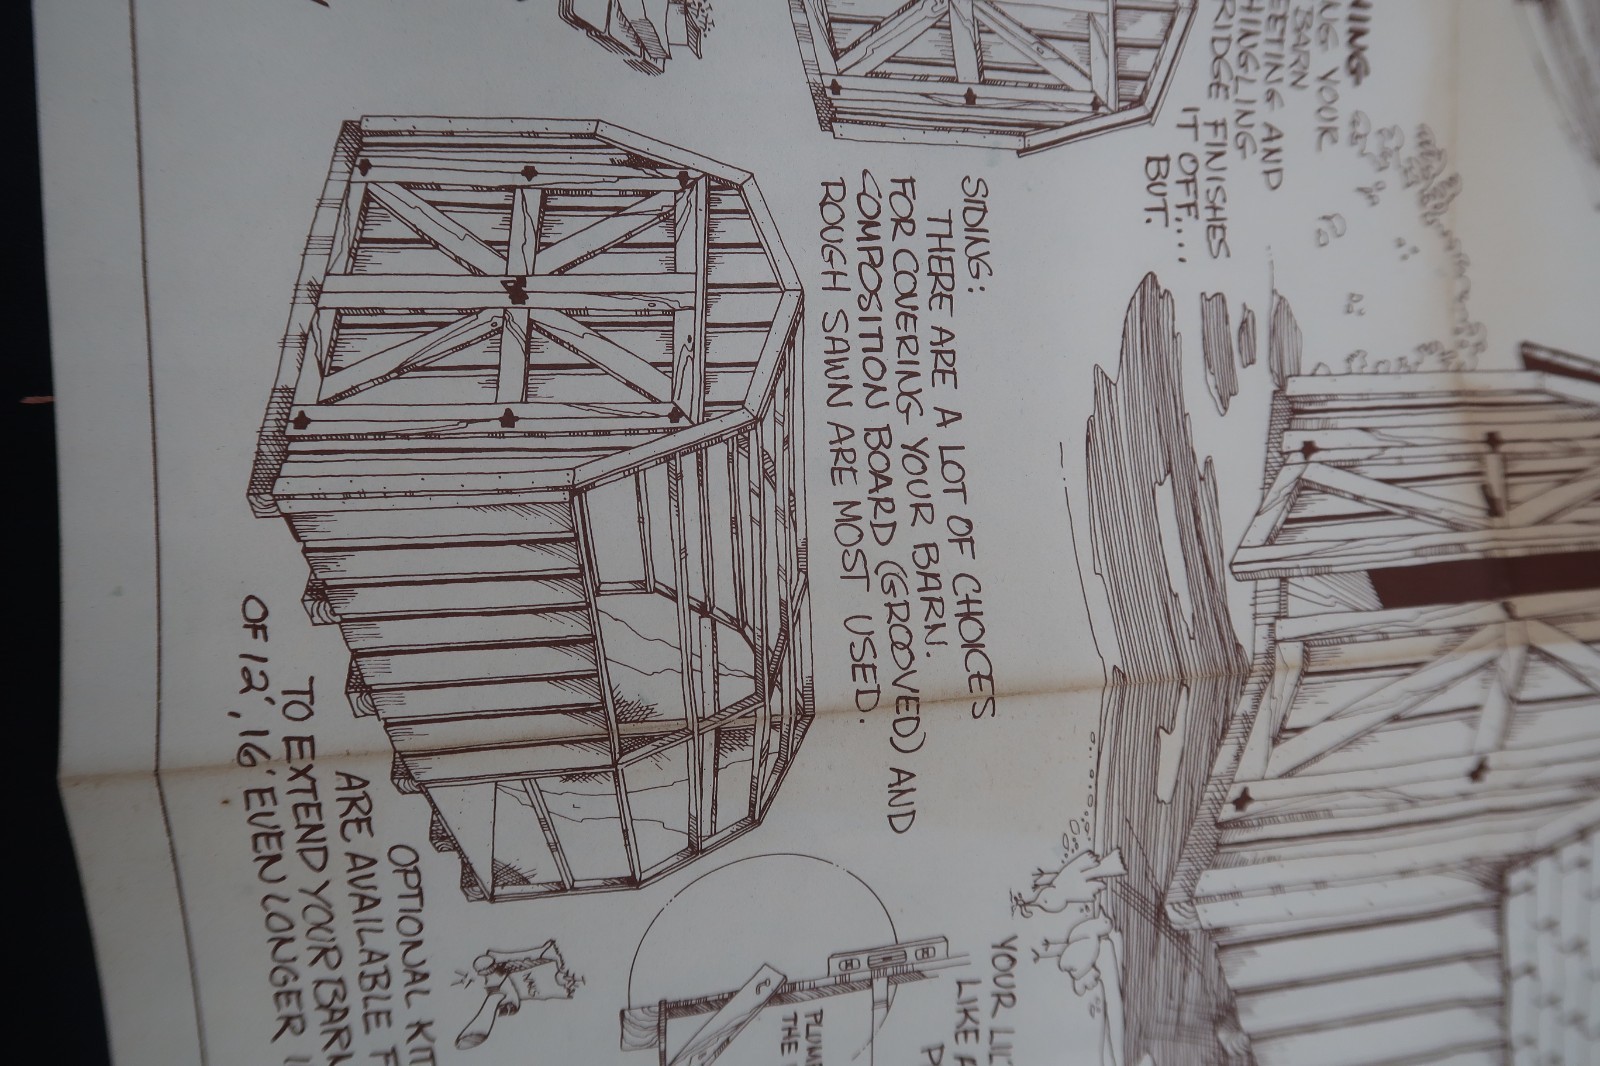 NING
NG YOUR
BARN
EETING AND
HING_ING
RIDGE FINISHES
IT OFF...
BUT.
SIDING:
THERE ARE A LOT OF CHOICES
FOR COVERING YOUR BARN.
COMPOSITION BOARD (GROOVED) AND
ROUGH SAWN ARE MOST USED.
YOUR LI
LIKE A
PLUM
THE
OPTIONAL KIT
ARE AVAILABLE F
TO EXTEND YOUR BARN
OF 12', 16' EVEN LONGER